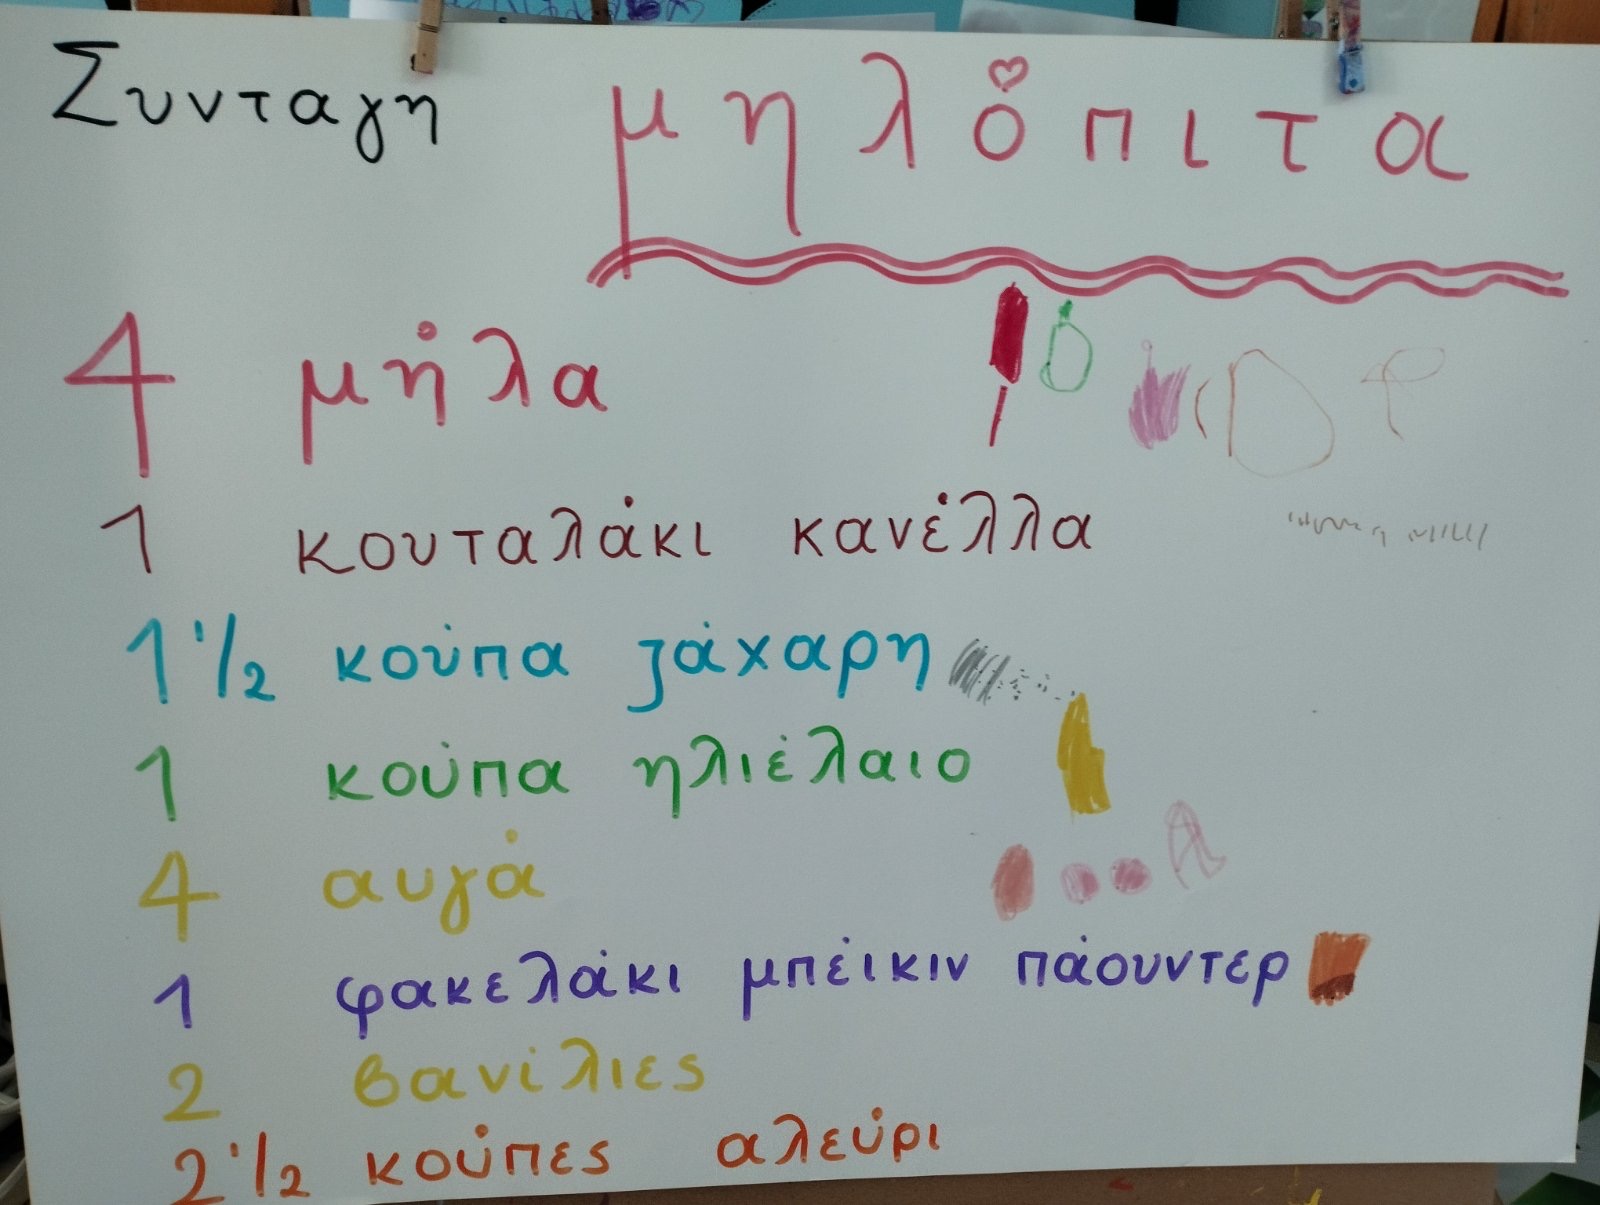 Συνταγη μηλόπιτα
4 μήλα
1 κουταλάκι κανέλλα
1 1/2 κούπα ζάχαρη
1 κούπα ηλιέλαιο
4 αυγά
1 φακελάκι μπέικιν πάουντερ
2 βανίλιες
2 1/2 κούπες αλεύρι